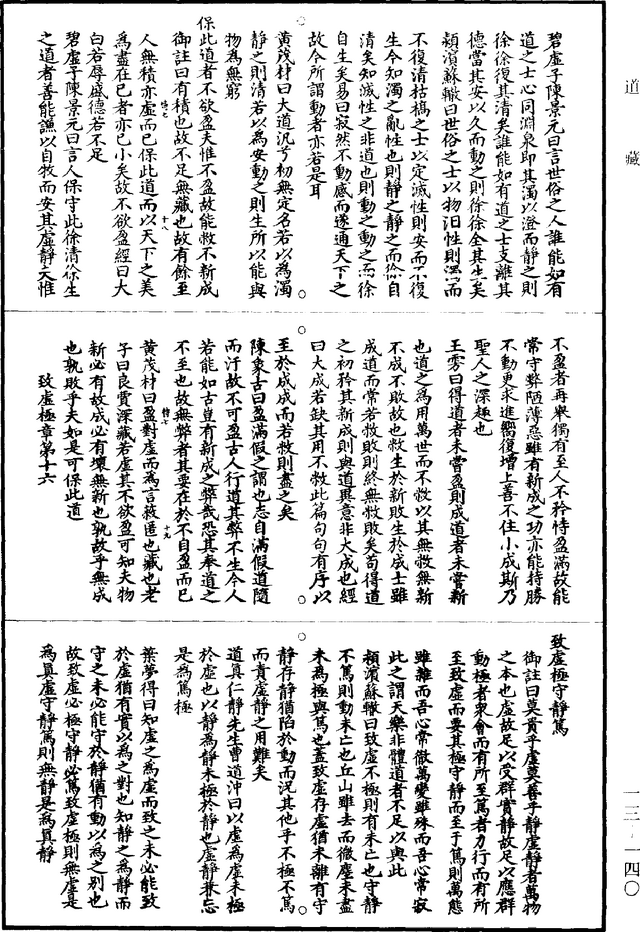 碧虛子陳景元曰言世俗之人誰能如有
道之士心同淵泉即其濁以澄而靜之則
徐徐復其清矣誰能如有道之士支離其
德當其安以久而動之則徐徐全其生矣
潁濱蘇轍曰世俗之士以物汨性則濁而
不復清枯槁之士以定滅性則安而不復
生今知濁之亂性也則靜之靜之而徐自
清矣知滅性之非道也則動之動之而徐
自生矣易曰寂然不動感而遂通天下之
故今所謂動者亦若是耳
黃茂材曰大道汎兮初無定名若以為濁
靜之則清若以為安動之則生所以能與
物為無窮
保此道者不欲盈夫惟不盈故能敝不新成
御註曰有積也故不足無藏也故有餘至
人無積亦虛而已保此道而以天下之美
為盡在已者亦已小矣故不欲盈經曰大
白若辱盛德若不足
碧虛子陳景元曰言人保守此徐清徐生
之道者善能謙以自牧而安其虛靜夫惟
不盈者再舉獨有至人不矜恃盈滿故能
常守弊陋薄惡雖有新成之功亦能持勝
不動更求進嚮復增上善不住小成斯乃
聖人之深趣也
王雱曰得道者未嘗盈則成道者未嘗新
也道之為用萬世而不敝以其無敝無新
不成不敗故也敝生於新敗生於成士雖
成道而常若敝敗則終無敝敗矣苟得道
之初矜其新成則與道異意非大成也經
曰大成若缺其用不敝此篇句句有序以
至於成成而若敝則盡之矣
陳象古曰盈滿假之謂也志自滿假道隨
而汙故不可盈古人行道其弊不生今人
若能如古豈有新成之弊哉恐其奉道之
不至也故無弊者其要在於不自盈而已
黃茂材曰盈對虛而為言敝匿也藏也老
子曰良賈深藏若虛其不欲盈可知夫物
新必有故成必有壞無新也孰故乎無成
也孰敗乎夫如是可保此道
致虛極章第十六
致虛極守靜篤
御註曰莫貴乎虛莫善乎靜虛靜者萬物
之本也虛故足以受群實靜故足以應群
動極者眾會而有所至篤者力行而有所
至致虛而要其極守靜而至于篤則萬態
雖雜而吾心常徹萬變雖殊而吾心常寂
此之謂天樂非體道者不足以與此
潁濱蘇轍曰致虛不極則有未亡也守靜
不篤則動未亡也丘山雖去而微塵未盡
未為極與篤也蓋致虛存虛猶未離有守
靜存靜猶陷於動而況其他乎不極不篤
而責虛靜之用難矣
道真仁靜先生曹道沖曰以虛為虛未極
於虛也以靜為靜未極於靜也虛靜兼忘
是為篤極
葉夢得曰知虛之為虛而致之未必能致
於虛猶有實以為之對也知靜之為靜而
守之未必能守於靜猶有動以為之別也
故致虛必極守靜必篤致虛極則無虛是
為真虛守靜篤則無靜是為真靜
道藏
一三—一四〇